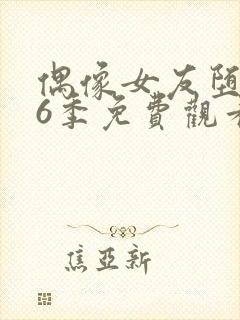 偶像女友堕
6季免費觀看
焦亞新